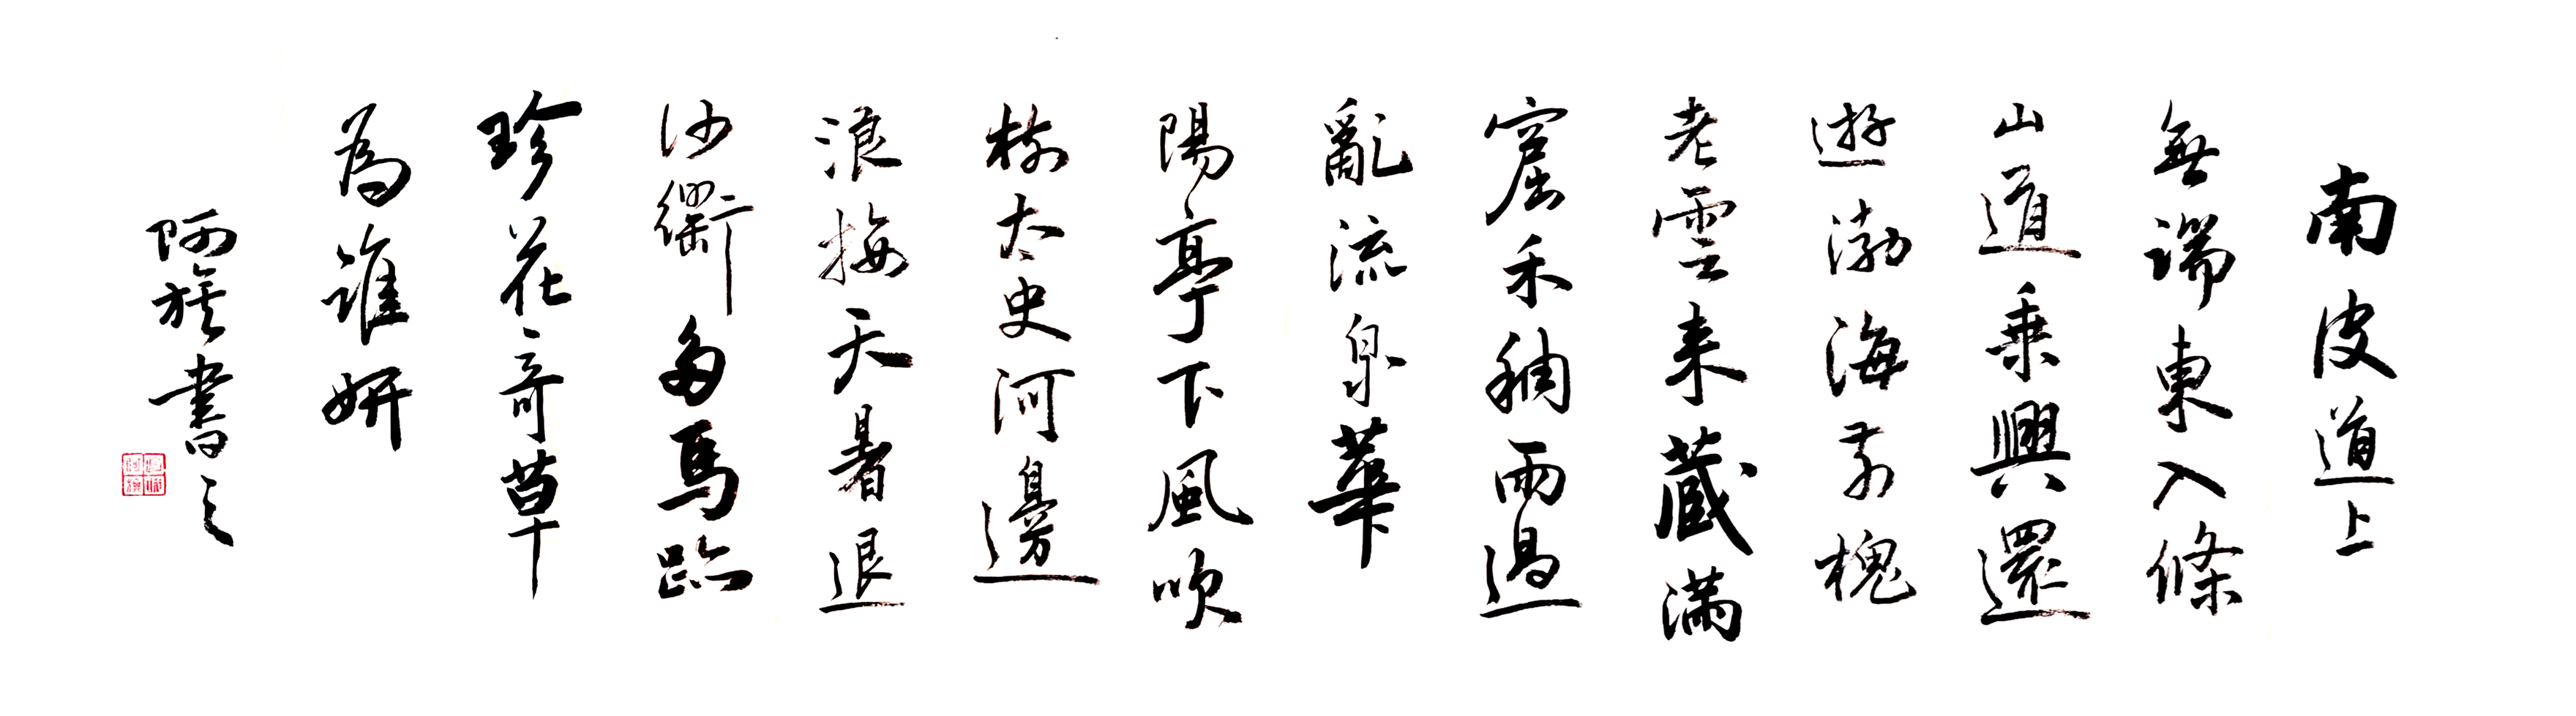 南皮道上
無端東入條
山道乗興還
遊渤海前槐
老雲來藏滿
窟禾稠雨過
亂流泉華
陽亭下風吹
樹太史河邊
浪接天暑退
沙衢多馬跡
珍花奇草
為誰妍
阿族書之